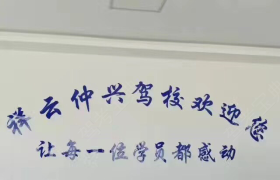 祥云仲兴驾校欢迎您
让每一位学员都感动